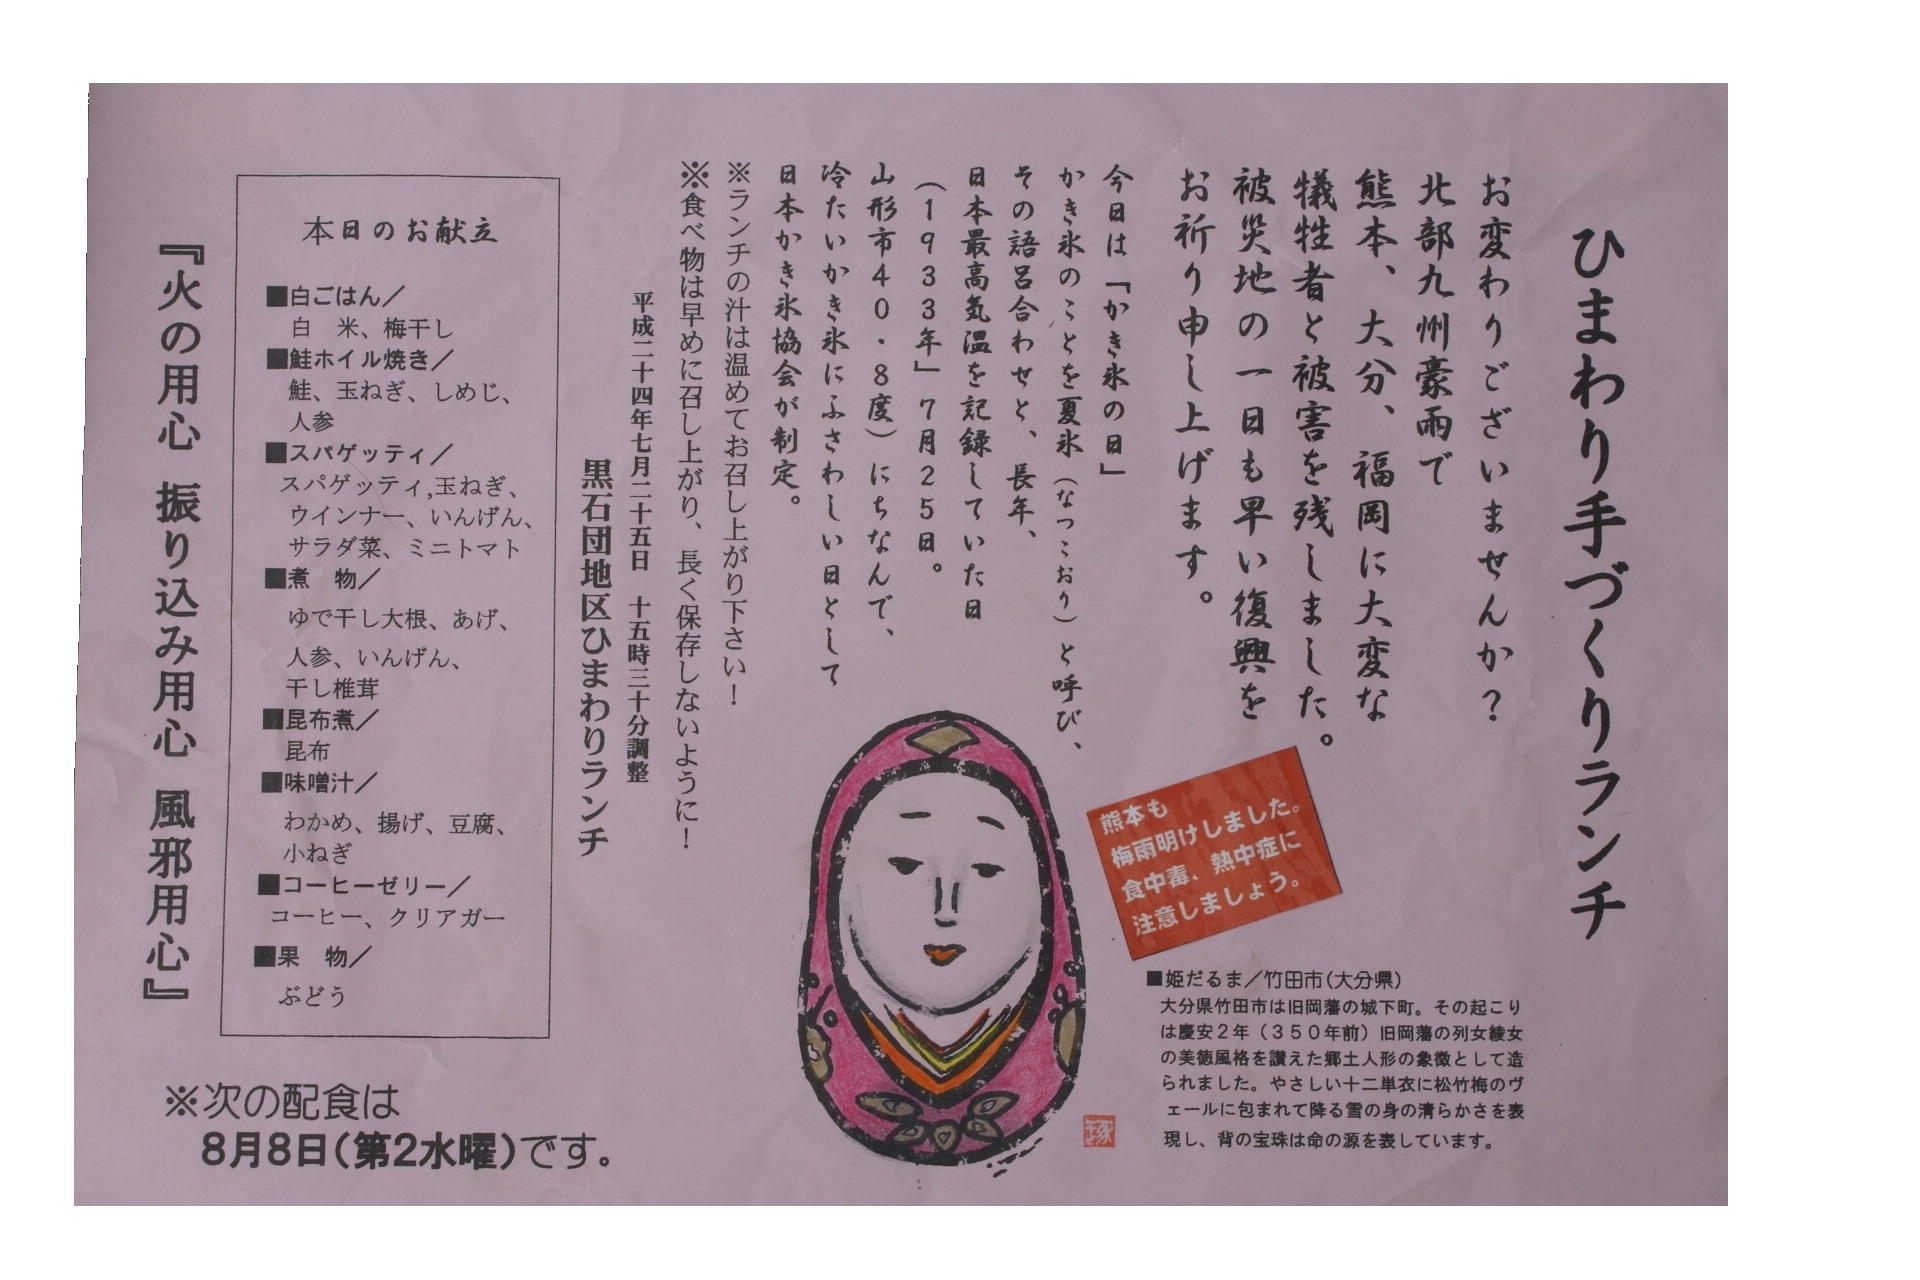 ひまわり手づくりランチ
お変わりございませんか？
北部九州豪雨で
熊本、大分、福岡に大変な
犠牲者と被害を残しました。
被災地の一日も早い復興を
お祈り申し上げます。
今日は「かき氷の日」
かき氷のことを夏氷（なつこおり）と呼び、
その語呂合わせと、長年、
日本最高気温を記録していた日
（１９３３年」７月２５日。
山形市４０・８度）にちなんで、
冷たいかき氷にふさわしい日として
日本かき氷協会が制定。
※ランチの汁は温めてお召し上がり下さい！
※食べ物は早めに召し上がり、長く保存しないように！
平成二十四年七月二十五日　十五時三十分調整
黒石団地区ひまわりランチ
熊本も
梅雨明けしました。
食中毒、熱中症に
注意しましょう。
■姫だるま／竹田市(大分県)
大分県竹田市は旧岡藩の城下町。その起こり
は慶安２年（３５０年前）旧岡藩の列女綾女
の美徳風格を讃えた郷土人形の象徴として造
られました。やさしい十二単衣に松竹梅のヴ
ェールに包まれて降る雪の身の清らかさを表
現し、背の宝珠は命の源を表しています。
琢
本日のお献立
■白ごはん／
白　米、梅干し
■鮭ホイル焼き／
鮭、玉ねぎ、しめじ、
人参
■スパゲッティ／
スパゲッティ,玉ねぎ、
ウインナー、いんげん、
サラダ菜、ミニトマト
■煮　物／
ゆで干し大根、あげ、
人参、いんげん、
干し椎茸
■昆布煮／
昆布
■味噌汁／
わかめ、揚げ、豆腐、
小ねぎ
■コーヒーゼリー／
コーヒー、クリアガー
■果　物／
ぶどう
『火の用心 振り込み用心 風邪用心』
※次の配食は
8月8日(第2水曜)です。